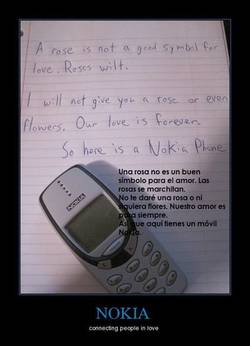 A rose is not a good symbol for
love. Roses wilt.
I will not give you a rose or even
flowers. Our love is forever.
So here is a Nokia Phone
Una rosa no es un buen
símbolo para el amor. Las
rosas se marchitan.
No te daré una rosa o ni
siquiera flores. Nuestro amor es
para siempre.
Así que aquí tienes un móvil
Nokia.
NOKIA
NOKIA
connecting people in love